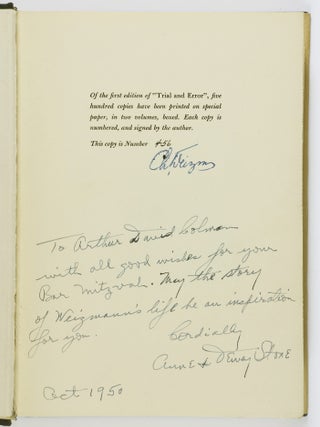 Of the first edition of "Trial and Error", five
hundred copies have been printed on special
paper, in two volumes, boxed. Each copy is
numbered, and signed by the author.
This copy is Number 456
Ch. Weizmann
To Arthur David Colman
with all good wishes for your
Bar Mitzvah. May the story
of Weizmann's life be an inspiration
for you.
Cordially
Anne & Dewey Stone
Oct 1950